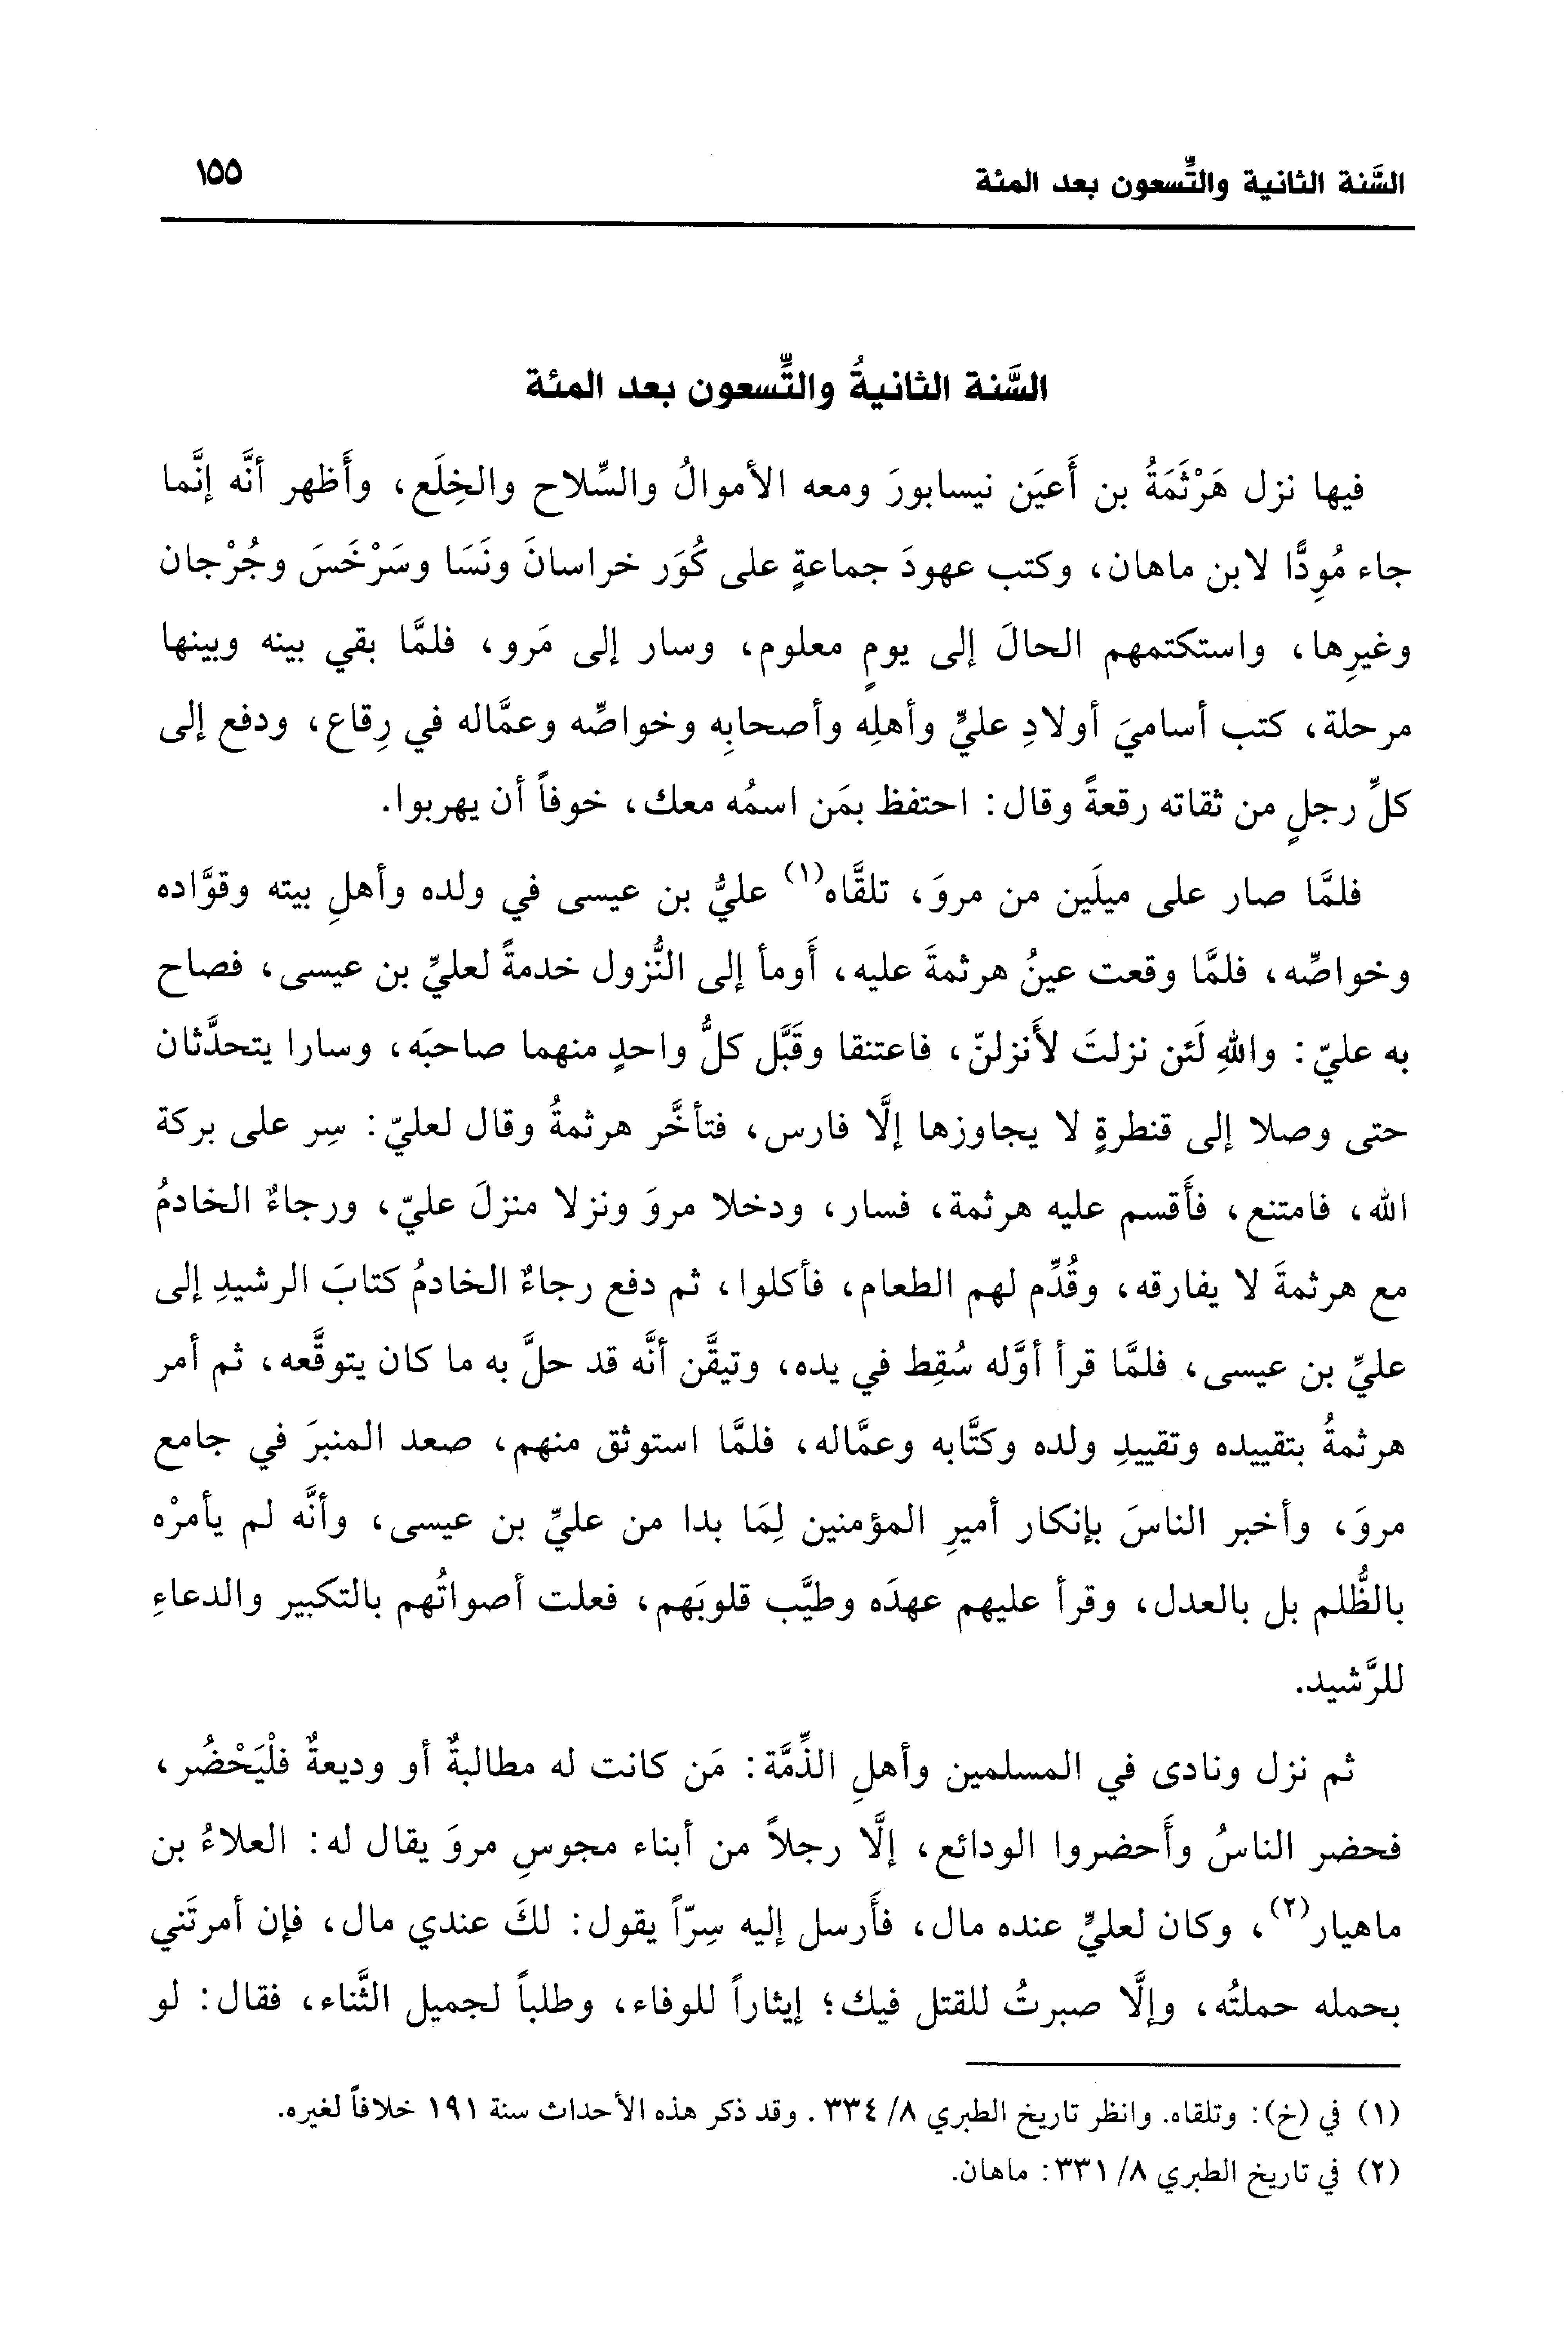 السَّنة الثانية والتِّسعون بعد المئة ١٥٥
السَّنة الثانيةُ والتِّسعون بعد المئة
فيها نزل هَرْثَمَةُ بن أَعيَن نيسابورَ ومعه الأموالُ والسِّلاح والخِلَع، وأَظهر أنَّه إنَّما
جاء مُوِدًّا لابن ماهان، وكتب عهودَ جماعةٍ على كُوَر خراسانَ ونَسَا وسَرْخَسَ وجُرْجان
وغيرِها، واستكتمهم الحالَ إلى يومٍ معلوم، وسار إلى مَرو، فلمَّا بقي بينه وبينها
مرحلة، كتب أساميَ أولادِ عليٍّ وأهلِه وأصحابِه وخواصِّه وعمَّاله في رِقاع، ودفع إلى
كلِّ رجلٍ من ثقاته رقعةً وقال: احتفظ بمَن اسمُه معك، خوفاً أن يهربوا.
فلمَّا صار على ميلَين من مروَ، تلقَّاه(١) عليُّ بن عيسى في ولده وأهلِ بيته وقوَّاده
وخواصِّه، فلمَّا وقعت عينُ هرثمةَ عليه، أَومأ إلى النُّزول خدمةً لعليِّ بن عيسى، فصاح
به عليّ: واللهِ لَئن نزلتَ لأَنزلنّ، فاعتنقا وقَبَّل كلُّ واحدٍ منهما صاحبَه، وسارا يتحدَّثان
حتى وصلا إلى قنطرةٍ لا يجاوزها إلَّا فارس، فتأخَّر هرثمةُ وقال لعليّ: سِر على بركة
الله، فامتنع، فأَقسم عليه هرثمة، فسار، ودخلا مروَ ونزلا منزلَ عليّ، ورجاءٌ الخادمُ
مع هرثمةَ لا يفارقه، وقُدِّم لهم الطعام، فأكلوا، ثم دفع رجاءٌ الخادمُ كتابَ الرشيدِ إلى
عليِّ بن عيسى، فلمَّا قرأ أوَّله سُقِط في يده، وتيقَّن أنَّه قد حلَّ به ما كان يتوقَّعه، ثم أمر
هرثمةُ بتقييده وتقييدِ ولده وكتَّابه وعمَّاله، فلمَّا استوثق منهم، صعد المنبرَ في جامع
مروَ، وأخبر الناسَ بإنكار أميرِ المؤمنين لِمَا بدا من عليِّ بن عيسى، وأنَّه لم يأمرْه
بالظُّلم بل بالعدل، وقرأ عليهم عهدَه وطيَّب قلوبَهم، فعلت أصواتُهم بالتكبير والدعاءِ
للرَّشيد.
ثم نزل ونادى في المسلمين وأهلِ الذِّمَّة: مَن كانت له مطالبةٌ أو وديعةٌ فلْيَحْضُر،
فحضر الناسُ وأَحضروا الودائع، إلَّا رجلاً من أبناء مجوسِ مروَ يقال له: العلاءُ بن
ماهيار(٢)، وكان لعليٍّ عنده مال، فأَرسل إليه سِرّاً يقول: لكَ عندي مال، فإن أمرتَني
بحمله حملتُه، وإلَّا صبرتُ للقتل فيك؛ إيثاراً للوفاء، وطلباً لجميل الثَّناء، فقال: لو
(١) في (خ): وتلقاه. وانظر تاريخ الطبري ٨/ ٣٣٤. وقد ذكر هذه الأحداث سنة ١٩١ خلافاً لغيره.
(٢) في تاريخ الطبري ٨/ ٣٣١: ماهان.